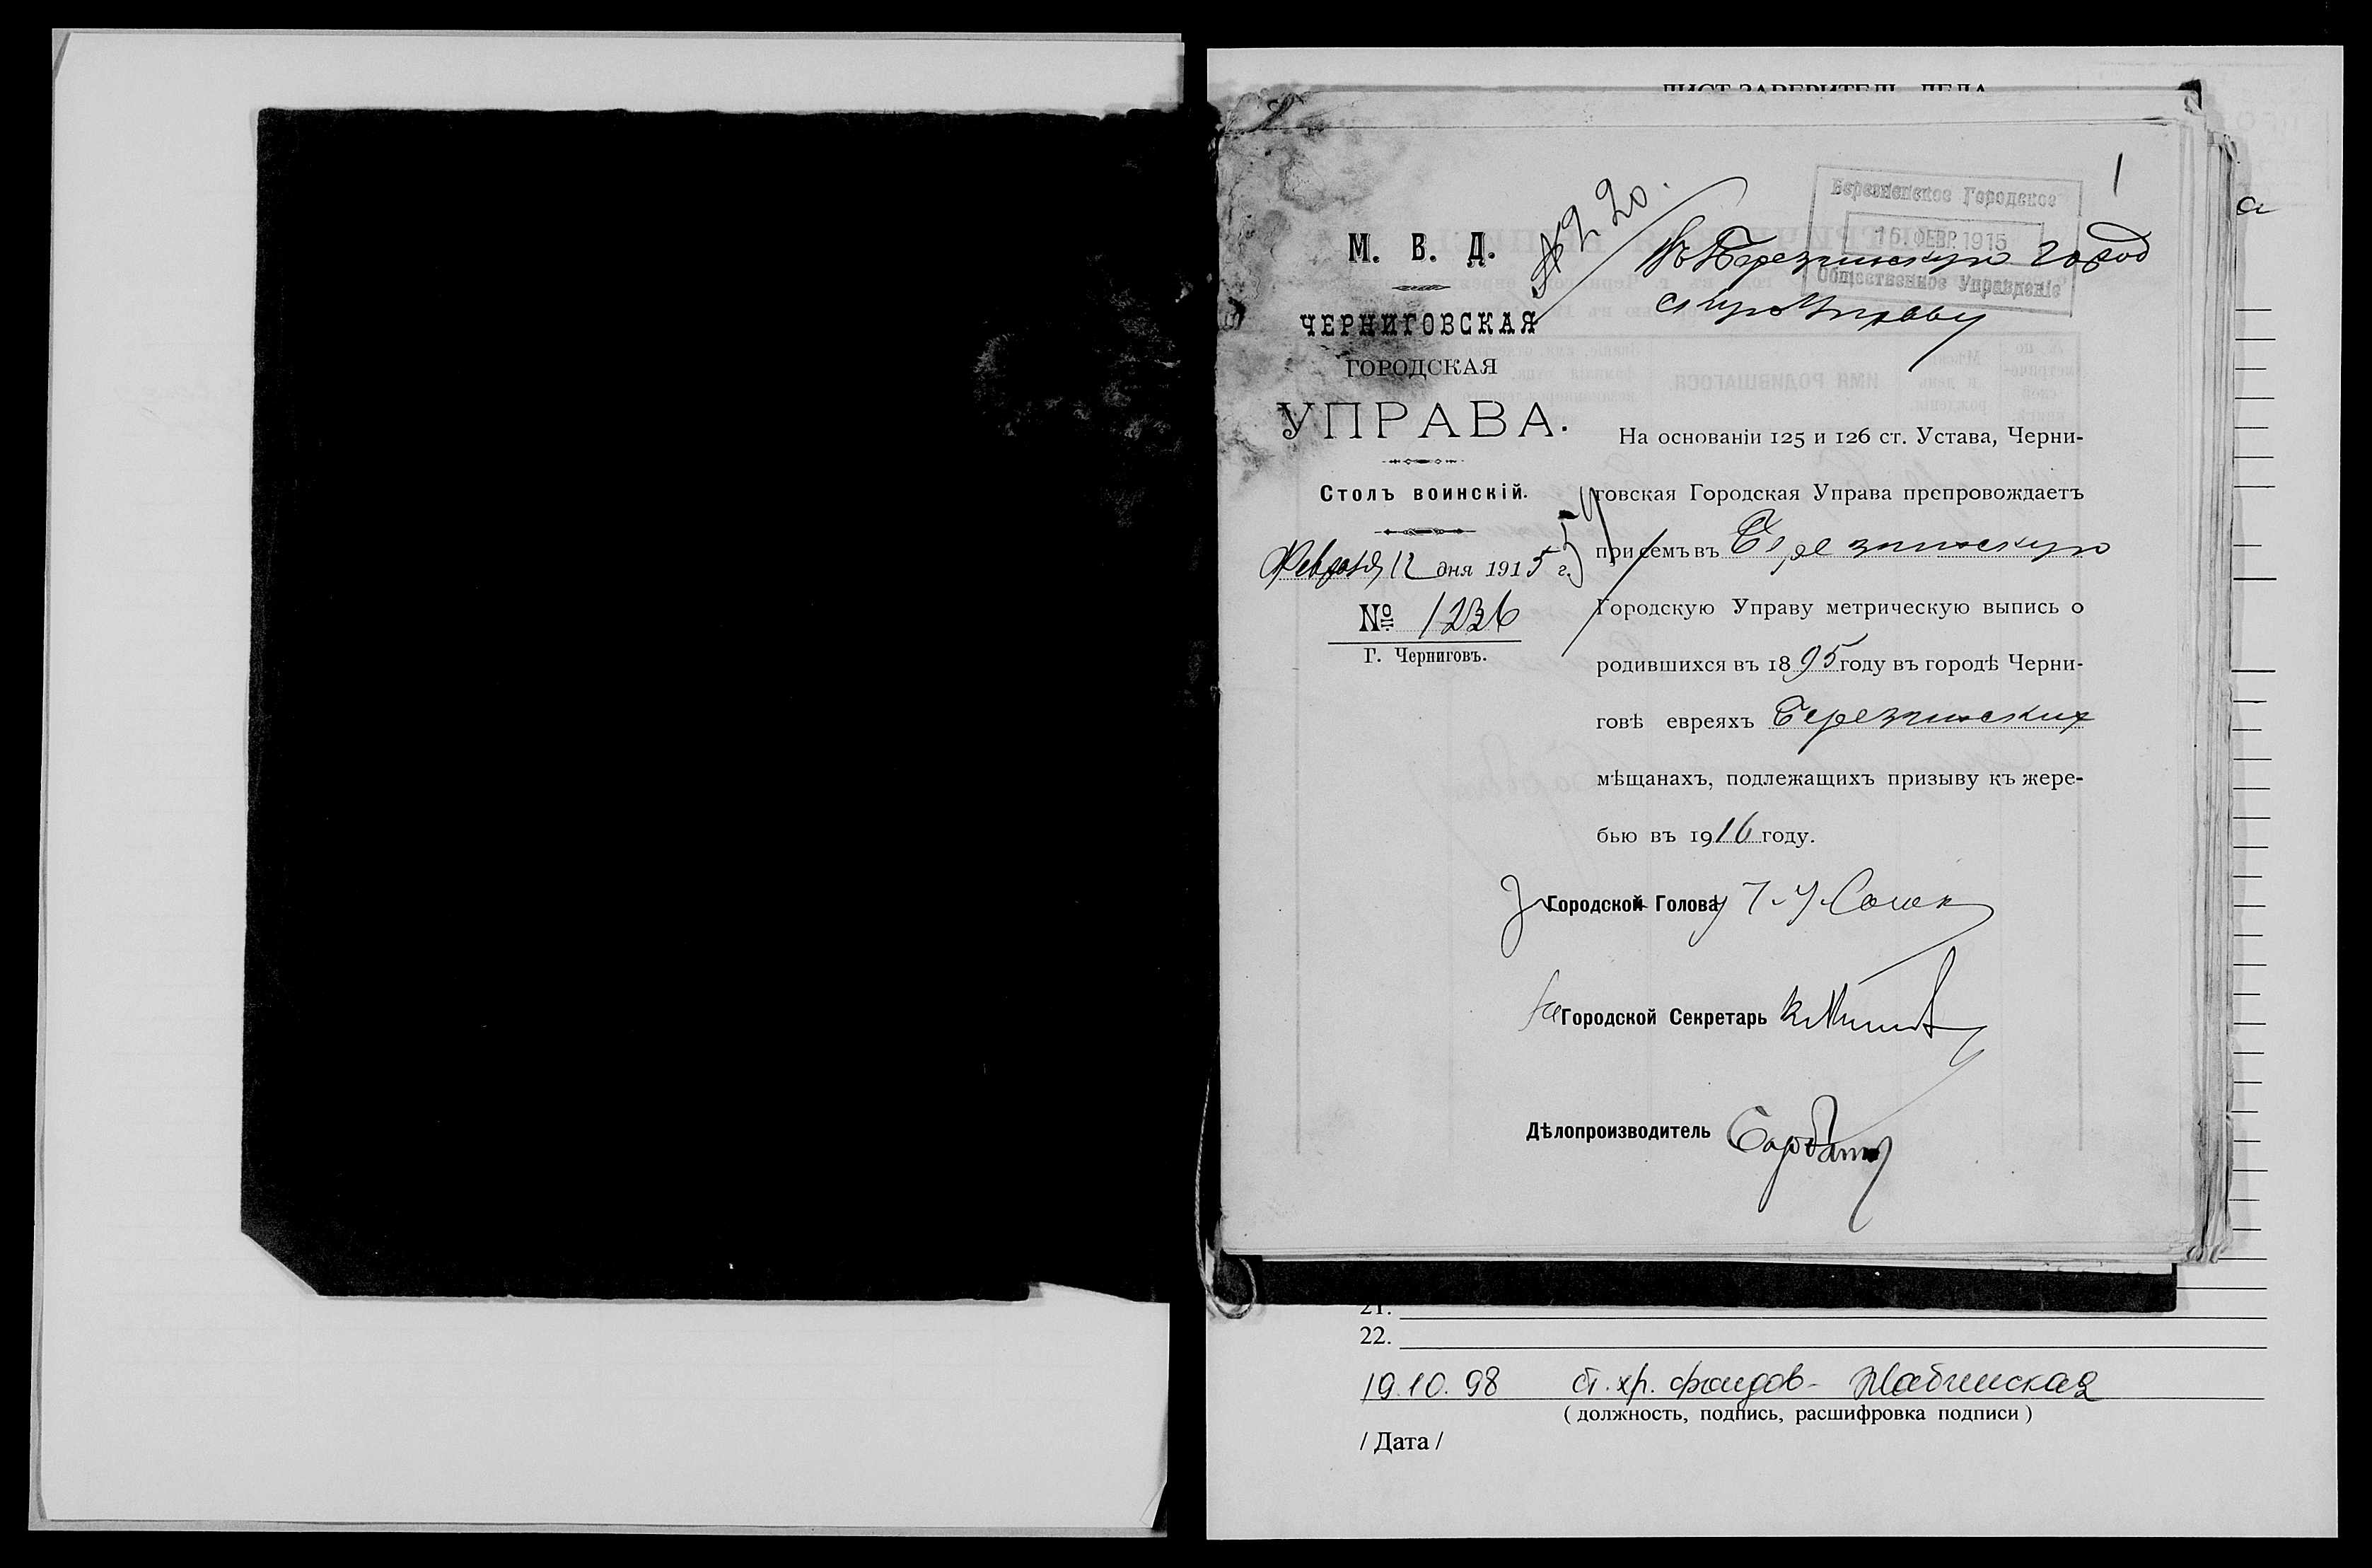 ЛИСТ-ЗАВЕРИТЕЛЬ ДЕЛА
1
а
№ 220.
Березненское Городское
16. ФЕВР. 1915
Общественное Управленіе
Въ Березнинскую город
скую Управу
М. В. Д.
ЧЕРНИГОВСКАЯ
ГОРОДСКАЯ
УПРАВА.
Столъ воинскій.
Февраля 12 дня 1915 г.
№ 1236
Г. Черниговъ.
На основаніи 125 и 126 ст. Устава, Черни-
говская Городская Управа препровождаетъ
при семъ въ Березнинскую
Городскую Управу метрическую выпись о
родившихся въ 1895 году въ городѣ Черни-
говѣ евреяхъ Березнинскихъ
мѣщанахъ, подлежащихъ призыву къ жере-
бью въ 1916 году.
За Городского Голову
За Городской Секретарь
Дѣлопроизводитель
21.
22.
19.10.98 ст. хр. фондов -
( должность, подпись, расшифровка подписи )
/ Дата /